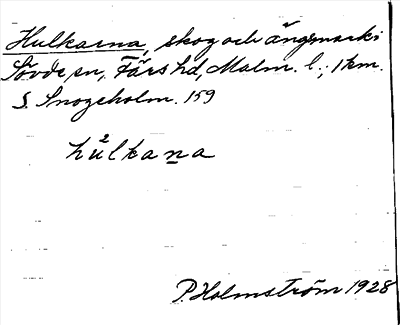 Hulkarna, skog och ängsmark i
Sövde sn, Färs hd, Malm. l.; 1 km.
S. Snogeholm. 159
hu²lkana
P. Holmström 1928